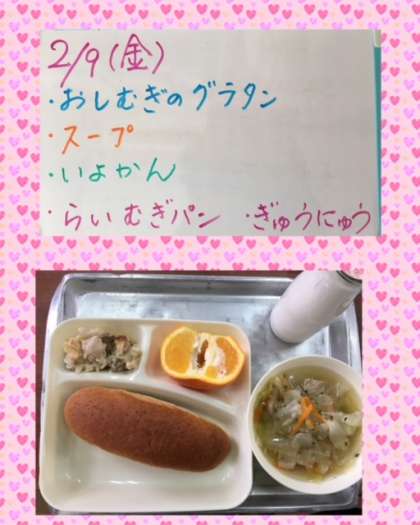 2/9(金)
・おしむぎのグラタン
・スープ
・いよかん
・らいむぎパン ・ぎゅうにゅう